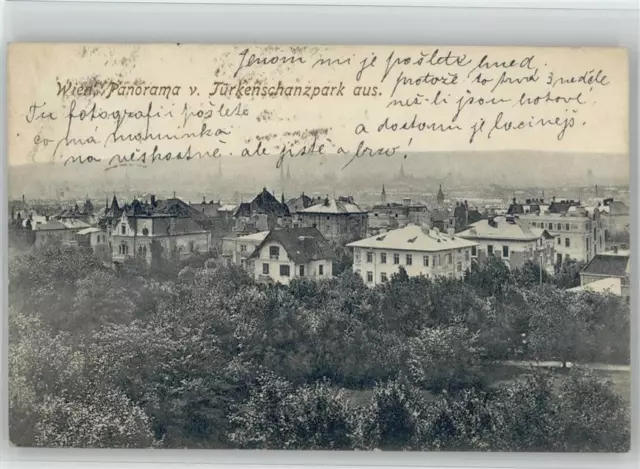 Jenom mi je pošlete hned,
protože to trvá 3 neděle
než-li jsou hotové
a dostanu je lacinejš.
Wien, Panorama v. Türkenschanzpark aus.
Tu fotografii pošlete
co má maminka
na ale jistě a brzo!